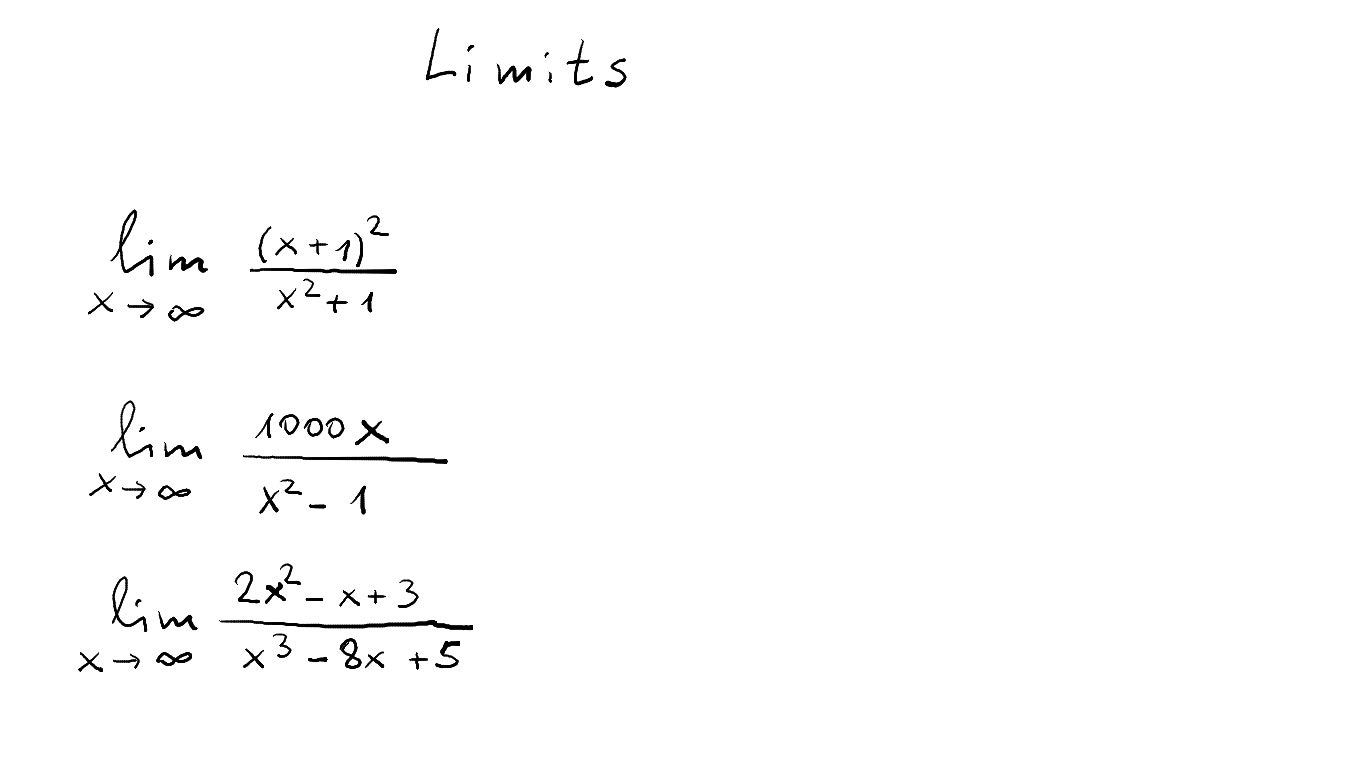 Limits
lim (x+1)²
x→∞ x²+1
lim 1000x
x→∞ x²-1
lim 2x²-x+3
x→∞ x³-8x+5